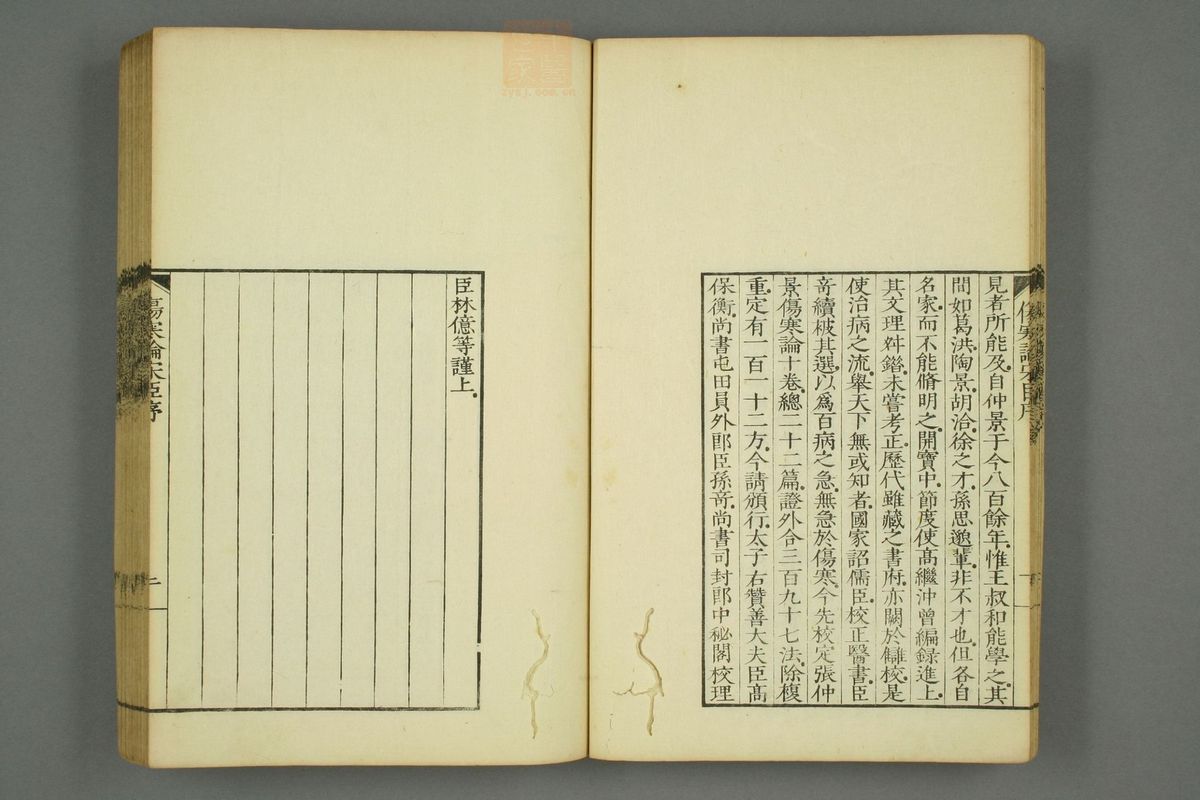 傷寒論宋臣序
見者所能及。自仲景于今八百餘年。惟王叔和能學之。其
間如葛洪。陶景。胡洽。徐之才。孫思邈輩。非不才也。但各自
名家。而不能脩明之。開寶中。節度使高繼沖曾編録進上。
其文理舛錯。未嘗考正。歷代雖藏之書府。亦闕於讎校。是
使治病之流。舉天下無或知者。國家詔儒臣校正醫書。臣
奇續被其選。以爲百病之急。無急於傷寒。今先校定張仲
景傷寒論十卷。總二十二篇。證外合三百九十七法。除複
重。定有一百一十二方。今請頒行。太子右贊善大夫臣高
保衡。尚書屯田員外郎臣孫奇。尚書司封郎中秘閣校理
臣林億等謹上。
傷寒論宋臣序
二
zysj.com.cn